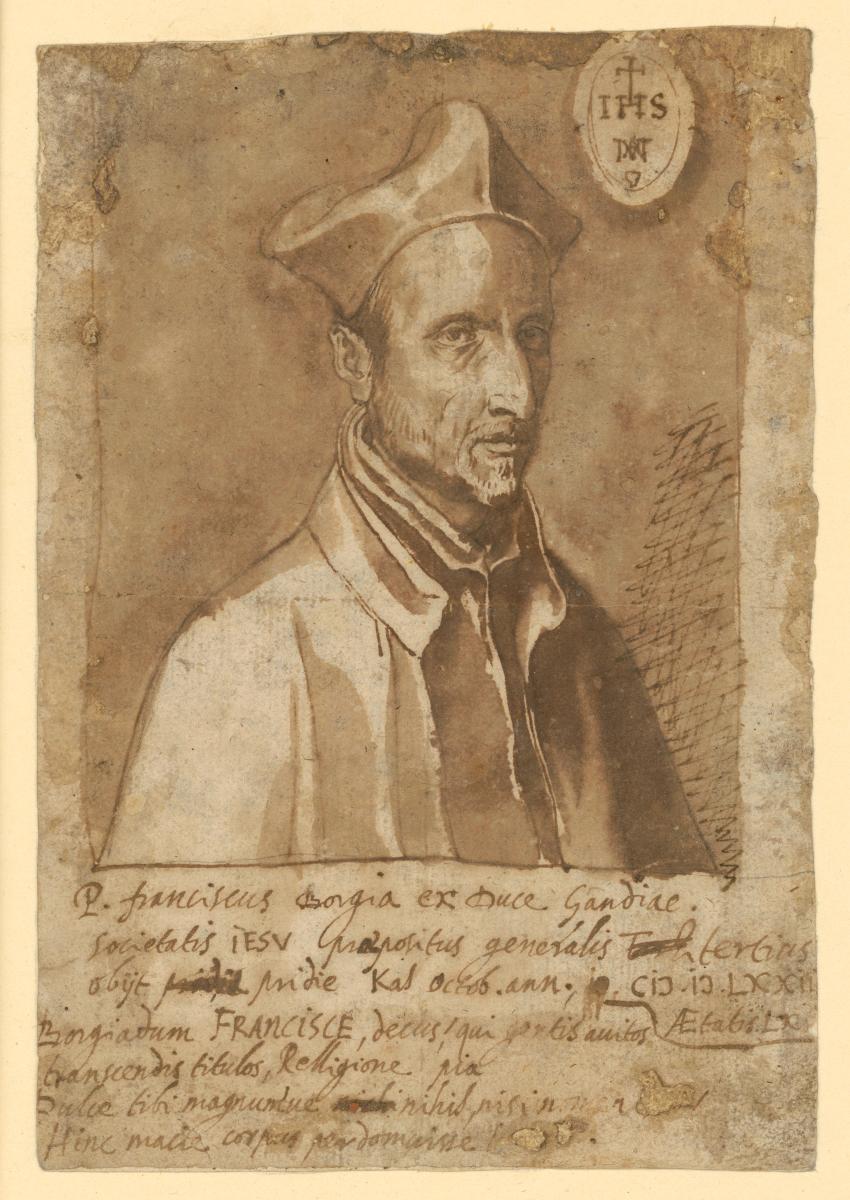 IHS
P. franciscus Borgia ex Duce Gandiae.
Societatis IESV præpositus generalis tertius
obijt pridie Kal octob. ann. CIƆ.IƆ.LXXII
Ætatis. LX
Borgiadum FRANCISCE, decus! qui gentis avitos
transcendis titulos, Relligione pia
Dulce tibi magnumue nihil, nisi nomen
Hinc macie corpus perdomuisse